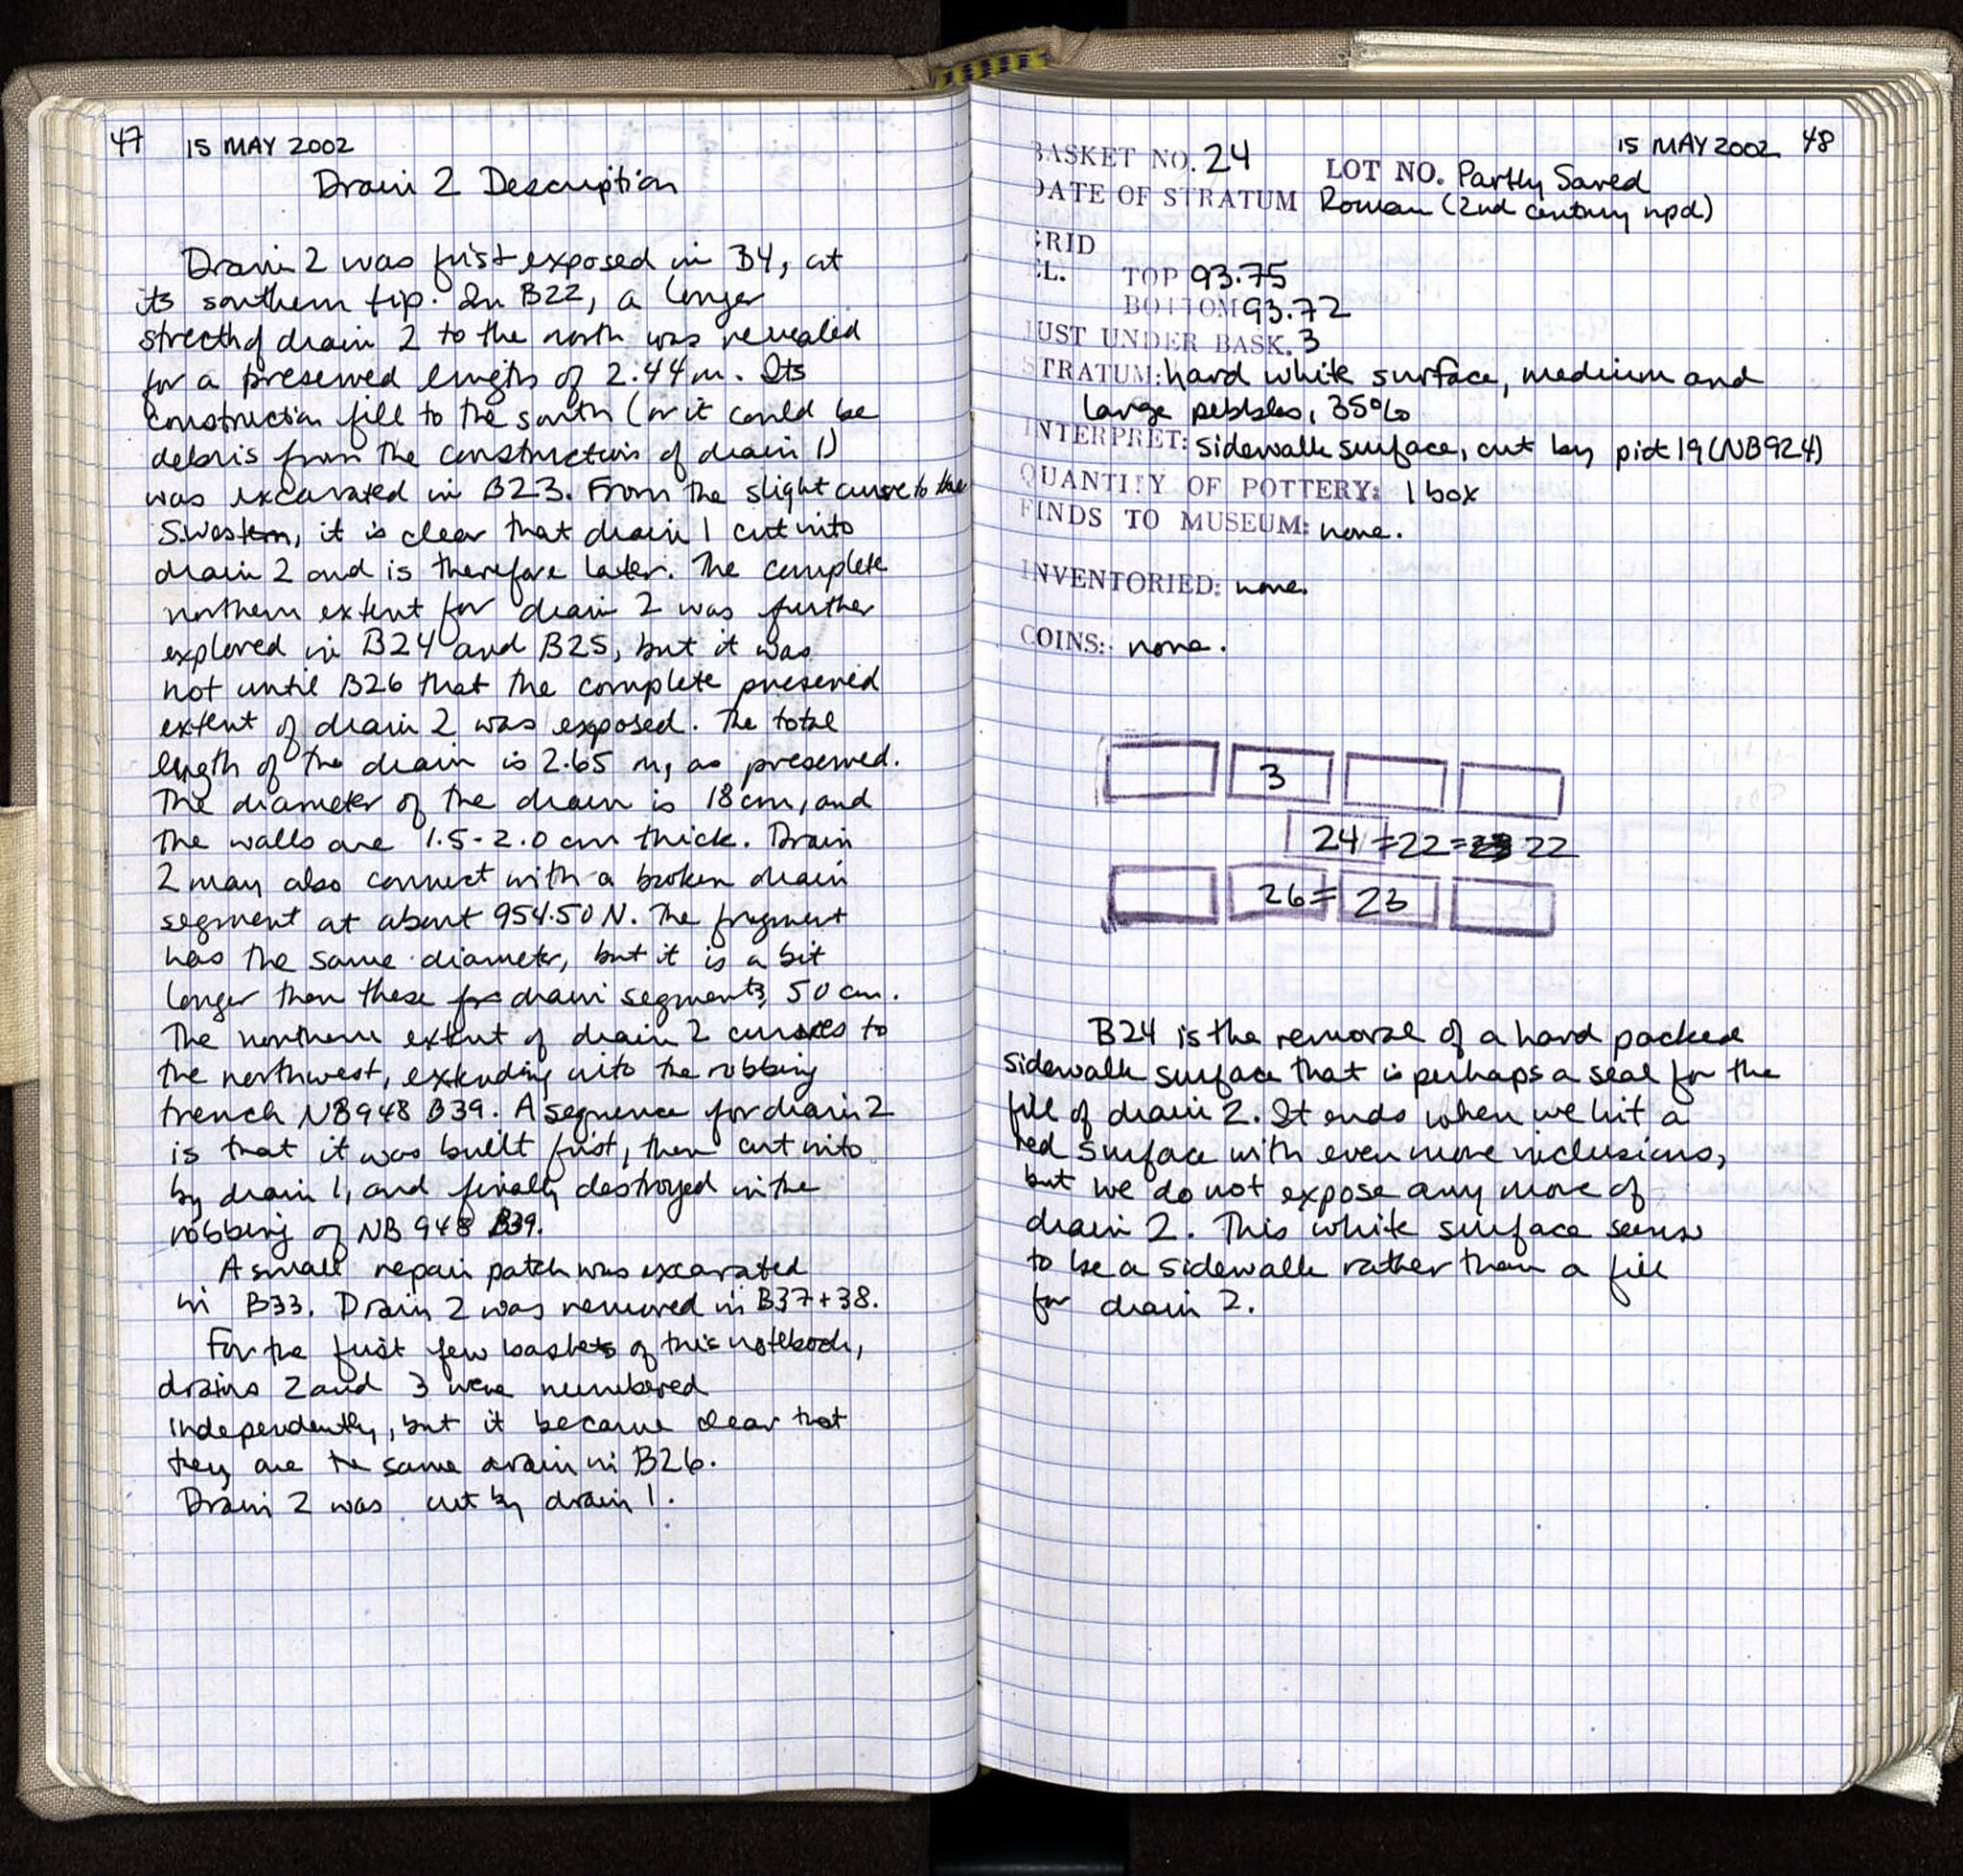 47 15 MAY 2002
Drain 2 Description
Drain 2 was first exposed in B4, at
its southern tip. In B22, a longer
strecth of drain 2 to the north was revealed
for a preserved length of 2.44m. Its
construction fill to the south (or it could be
debris from the construction of drain 1)
was excavated in B23. From the slight curve to the
S.Western, it is clear that drain 1 cut into
drain 2 and is therefore later. The complete
northern extent for drain 2 was further
explored in B24 and B25, but it was
not until B26 that the complete preserved
extent of drain 2 was exposed. The total
length of the drain is 2.65 m, as preserved.
The diameter of the drain is 18cm, and
the walls are 1.5-2.0 cm thick. Drain
2 may also connect with a broken drain
segment at about 954.50 N. The fragment
has the same diameter, but it is a bit
longer than these drain segments, 50 cm.
The northern extent of drain 2 curves to
the northwest, extending into the robbing
trench NB948 B39. A sequence for drain 2
is that it was built first, then cut into
by drain 1, and finally destroyed in the
robbing of NB 948 B39.
A small repair patch was excavated
in B33. Drain 2 was removed in B37+38.
For the first few baskets of this notebook,
drains 2 and 3 were numbered
independently, but it became clear that
they are the same drain in B26.
Drain 2 was cut by drain 1.
15 MAY 2002 48
BASKET NO. 24 LOT NO. Partly Saved
DATE OF STRATUM Roman (2nd century npd)
GRID
EL. TOP 93.75
BOTTOM 93.72
JUST UNDER BASK. 3
STRATUM: hard white surface, medium and
large pebbles, 35%
INTERPRET: sidewalk surface, cut by pit 19 (NB924)
QUANTITY OF POTTERY: 1 box
FINDS TO MUSEUM: none.
INVENTORIED: none.
COINS: none.
3
24 =22= 22
26= 23
B24 is the removal of a hard packed
sidewalk surface that is perhaps a seal for the
fill of drain 2. It ends when we hit a
red surface with even more inclusions,
but we do not expose any more of
drain 2. This white surface seems
to be a sidewalk rather than a fill
for drain 2.